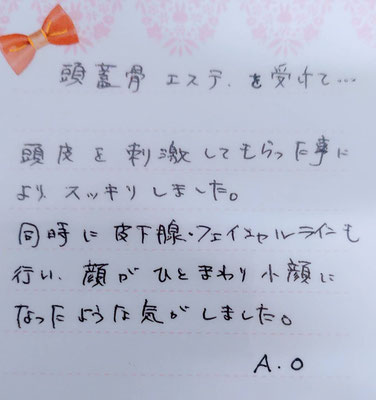 頭蓋骨エステ.を受けて…
頭皮を刺激してもらった事に
よりスッキリしました。
同時に皮下腺・フェイシャルラインも
行い、顔がひとまわり小顔に
なったような気がしました。
A.O